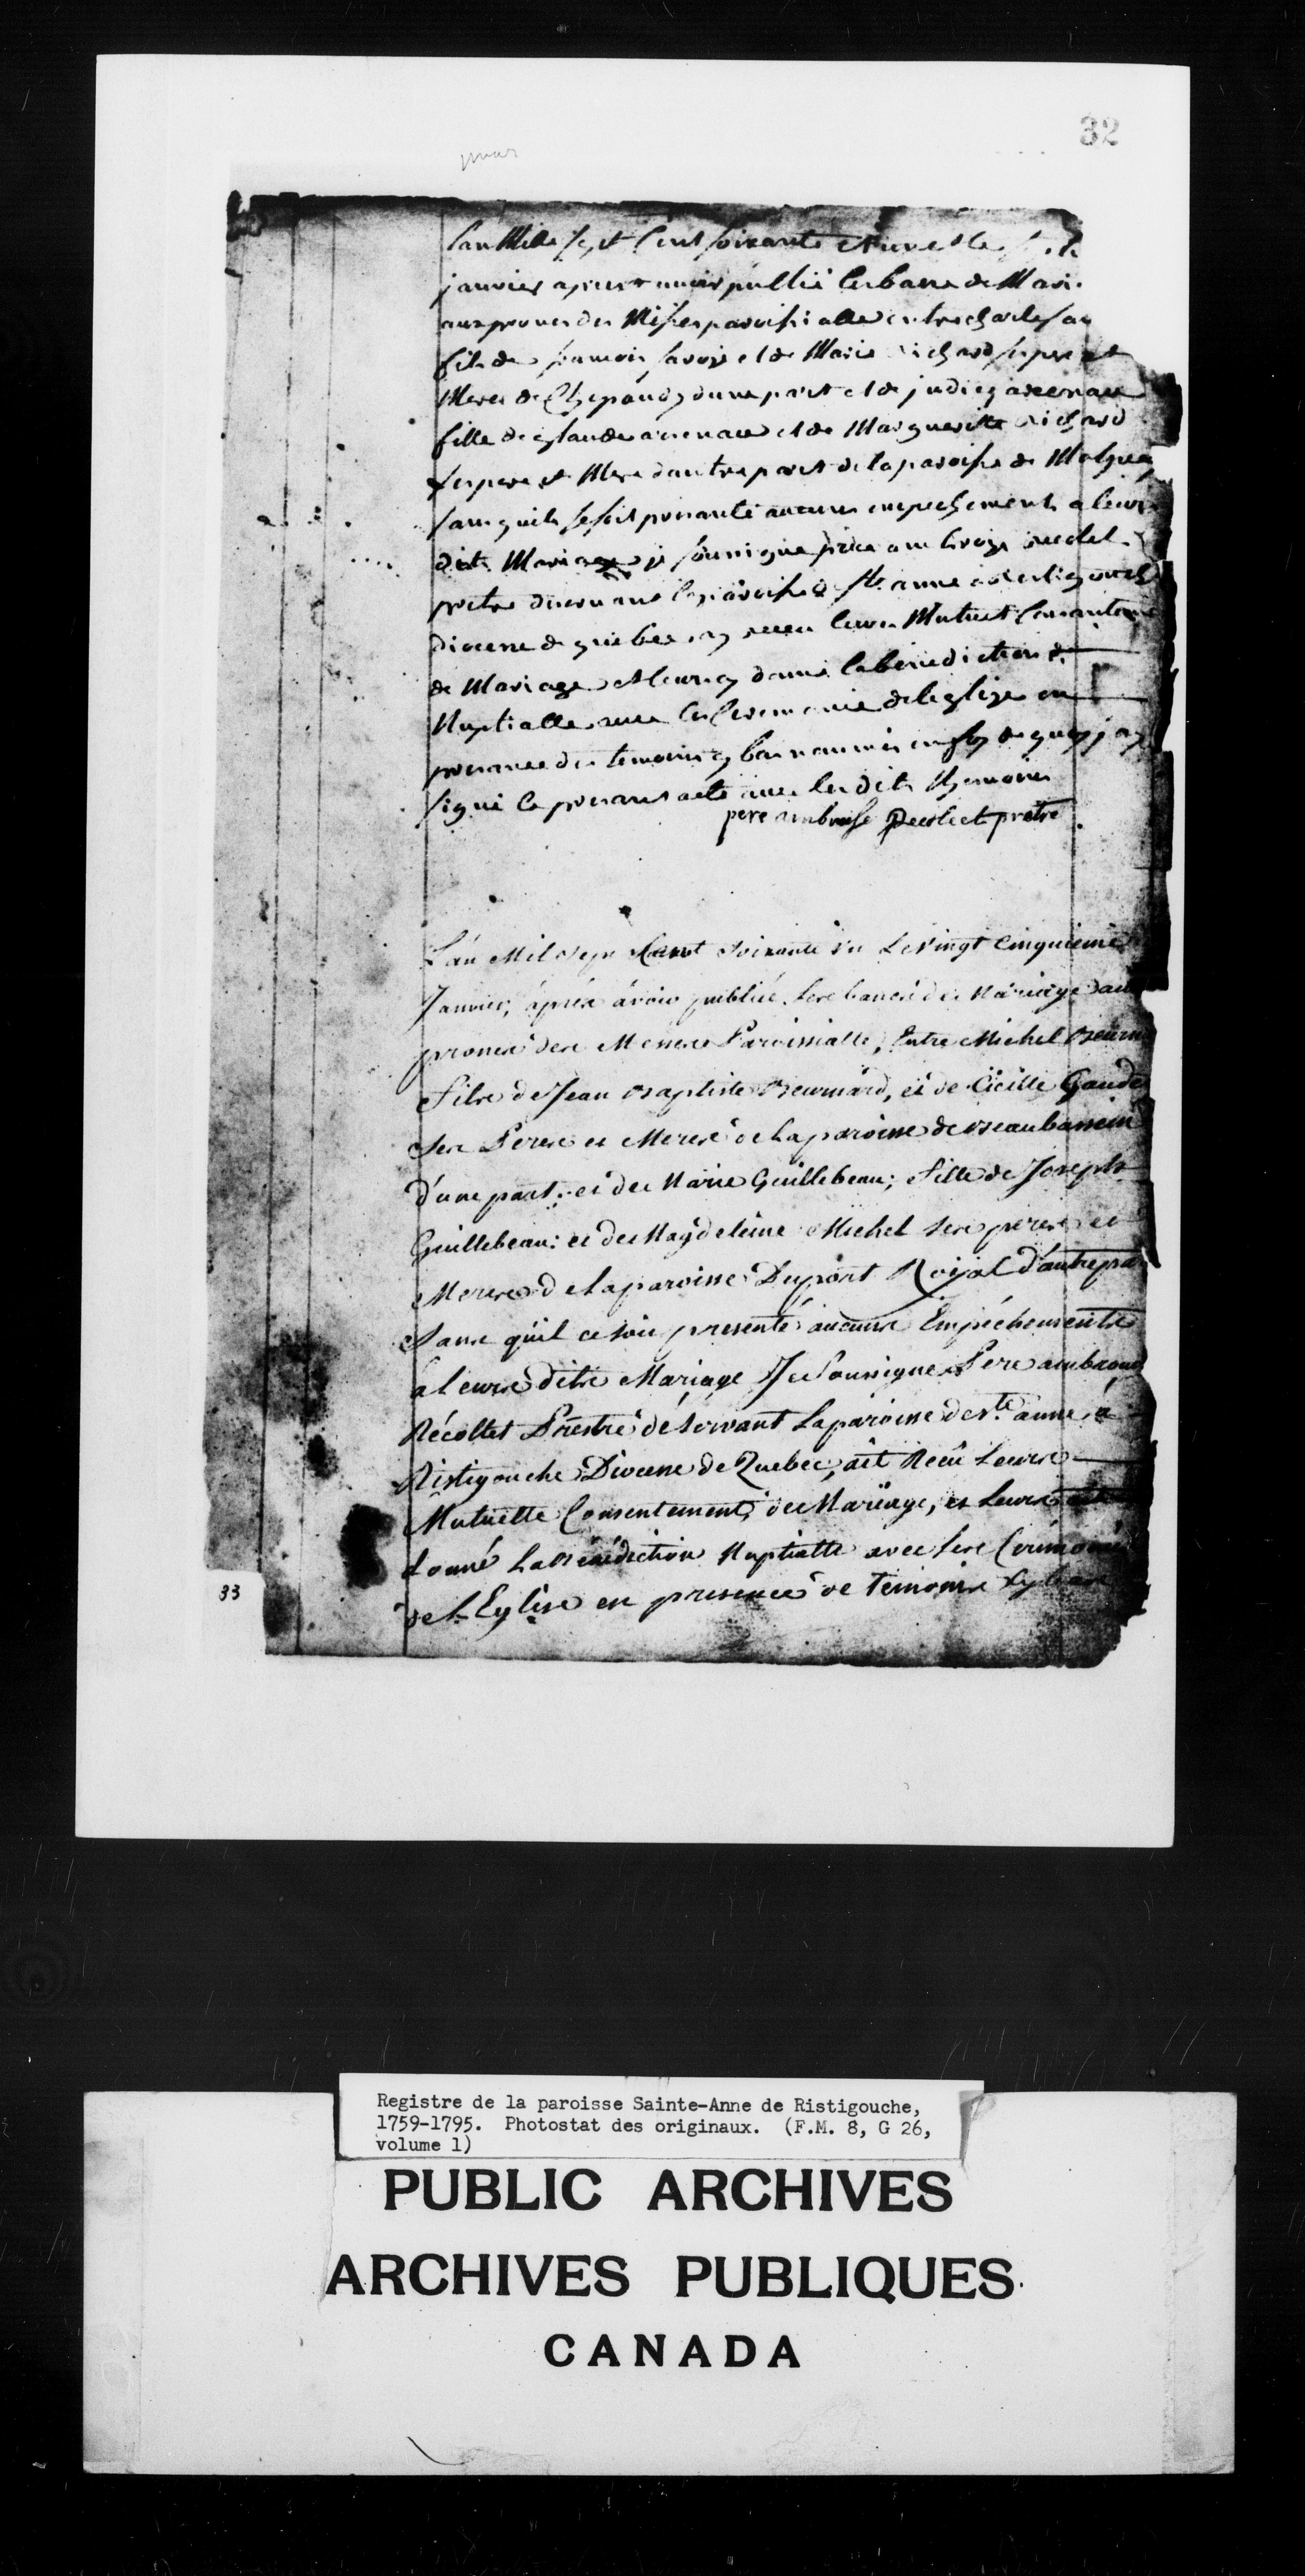 32
Lan Mille sept Cent soixante et une le
janvier apres avoir publié les bans de Mari
aux prones des Messes paroissialle entre charles sa
fils de francois savoy et de Marie richard ses pere et
Mere de Chepaudy dune part et de judieg arcenau
fille de glaude arcenau et de Marguerite richard
ses pere et Mere dautre part de la paroisse de
sans quils se soit presanté aucuns empechements a leur
dit Mariage je sousigné pere ambroise recolet
pretre deservant la paroisse de Ste anne a ristigouch
diocese de quebec ay receu leur Mutuel Consanteme
de Mariage et leur ay donné la benediction
Nuptialle avec les ceremonie de leglise en
presance des temoins cy bas nommés en foy de quoy jay
signé le presant acte avec les dits themoins
pere ambroise Recolect pretre
L'án Mil sept Cent soixante un Le vingt Cinquieme
Janvier, áprés ávoir publiié les bancs de Mariage aux
prones des Messes Paroissialle, Entre Michel Beurn
fils de Jean Baptiste Beurnárd, et de Cicille Gaude
ses Peres et Meres de la paroisse de Beaubassein
d'une part; et de Marie Guillebeau; fille de Joseph
Guillebeau: et de Magdeleine Michel ses peres et
Meres de la paroisse Duport Royal d'autre par
Sans qúil ce soit presenté aucuns Empéchements
à leurs dits Mariage Je Soussigné Pere ambrois
Récollet Prestre déservant La paroisse de Ste anne á
Ristigouche Diocese de Quebec, ait Recû Leurs
Mutuelle Consentement de Mariage, et Leurs
donné La Bénédiction Nuptialle avec les Cérémonie
de L'Eglise en presence de Temoins Cy bas
33
Registre de la paroisse Sainte-Anne de Ristigouche,
1759-1795. Photostat des originaux. (F.M. 8, G 26,
volume 1)
PUBLIC ARCHIVES
ARCHIVES PUBLIQUES
CANADA